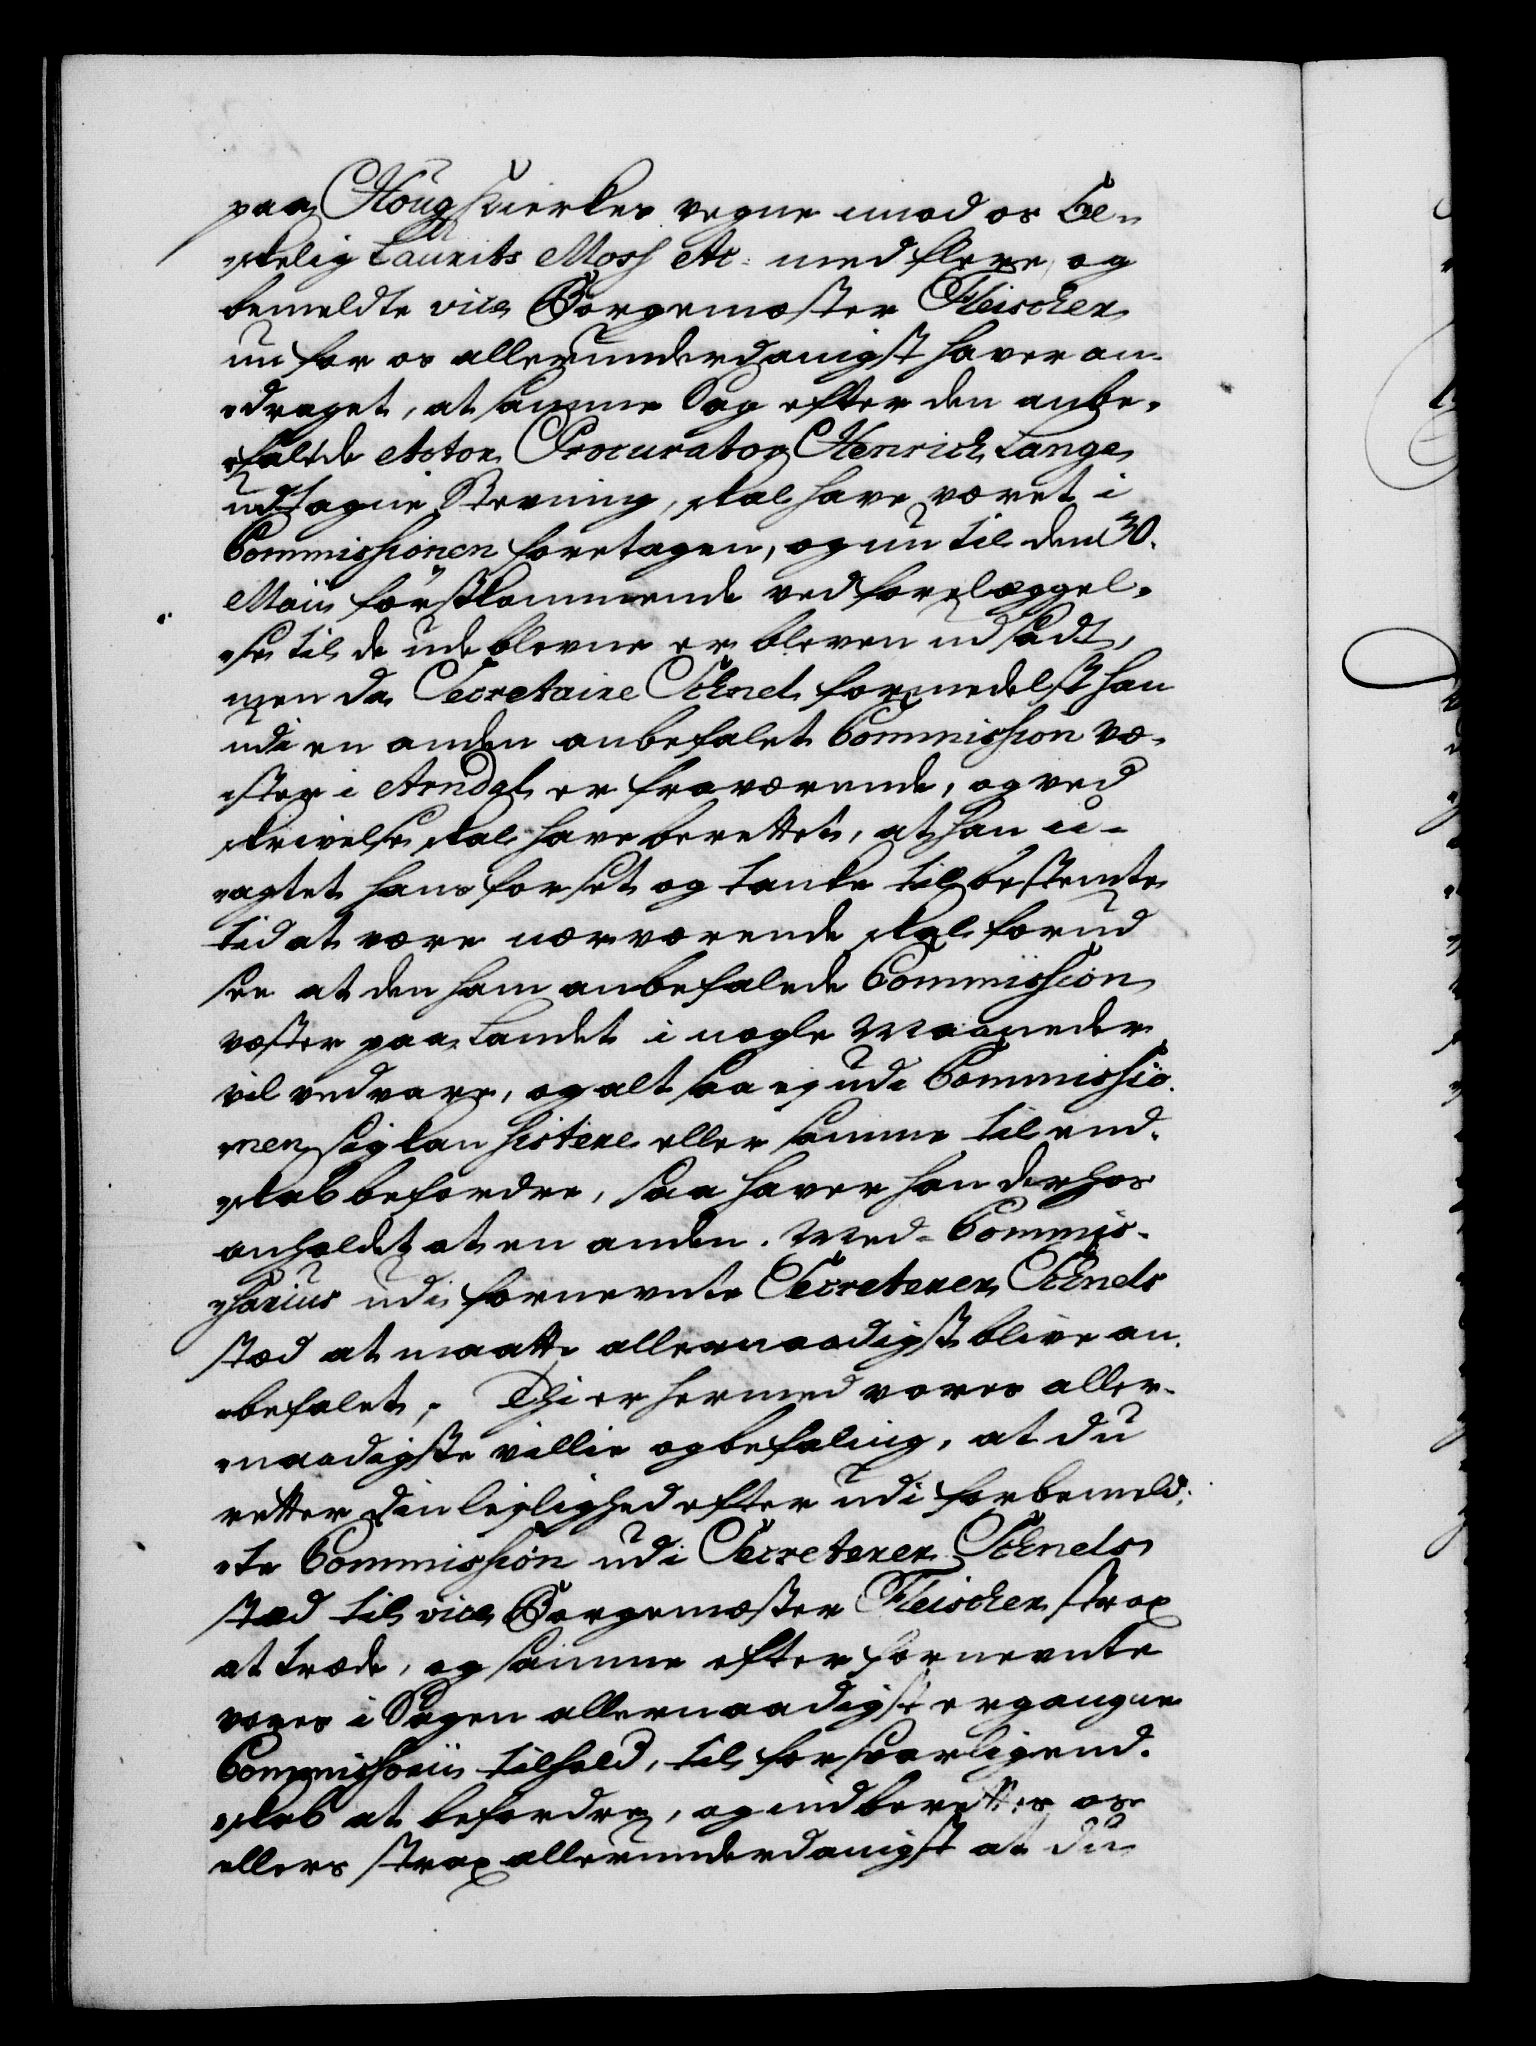 paa Houg Kierkes vegne imod os El¬
skelig Laurits Mossh etc: med flere, og
bemeldte vice Borgemester Fleischer
nu for os allerunderdanigst haver an¬
draget, at samme Sag efter den anbe¬
falede Actor Procurator Henrich Lange
udtagne Stevning, skal have været i
Commissionen foretagen, og nu til den 30.
Maii förstkommende ved forelæggel¬
se til de udeblevne er bleven udsadt,
men da Secretaire Schnel formedelst han
udi en anden anbefalet Commission væ¬
ster i Arndal er fraværende, og ved
skrivelse skal have berettet, at han u¬
agtet hans forset og tanke til bestemte
tid at være nærværende skal forud
see at den ham anbefalede Commission
væster paa Landet i nogle Maaneder
vil vedvare, og alt saa ej udi Commissio¬
nen sig kan sistere eller samme til end¬
skab befordre, saa haver han derhos
anholdet at en anden Med-Commis¬
sarius udi fornevnte Secreterer Schnels
stæd at maatte allernaadigst blive an¬
befalet; Thi er hermed vores aller¬
naadigste villie og befaling, at du
retter din lejlighed efter udi forbemeld¬
te Commission udi Secreterer Schnels
stæd til vice Borgemester Fleischer strax
at træde, og samme efter fornevnte
vores i Sagen allernaadigst ergangne
Commissorii tilhold, til forsvarlig end¬
skab at befordre, og indberetter os
ellers strax allerunderdanigst at du